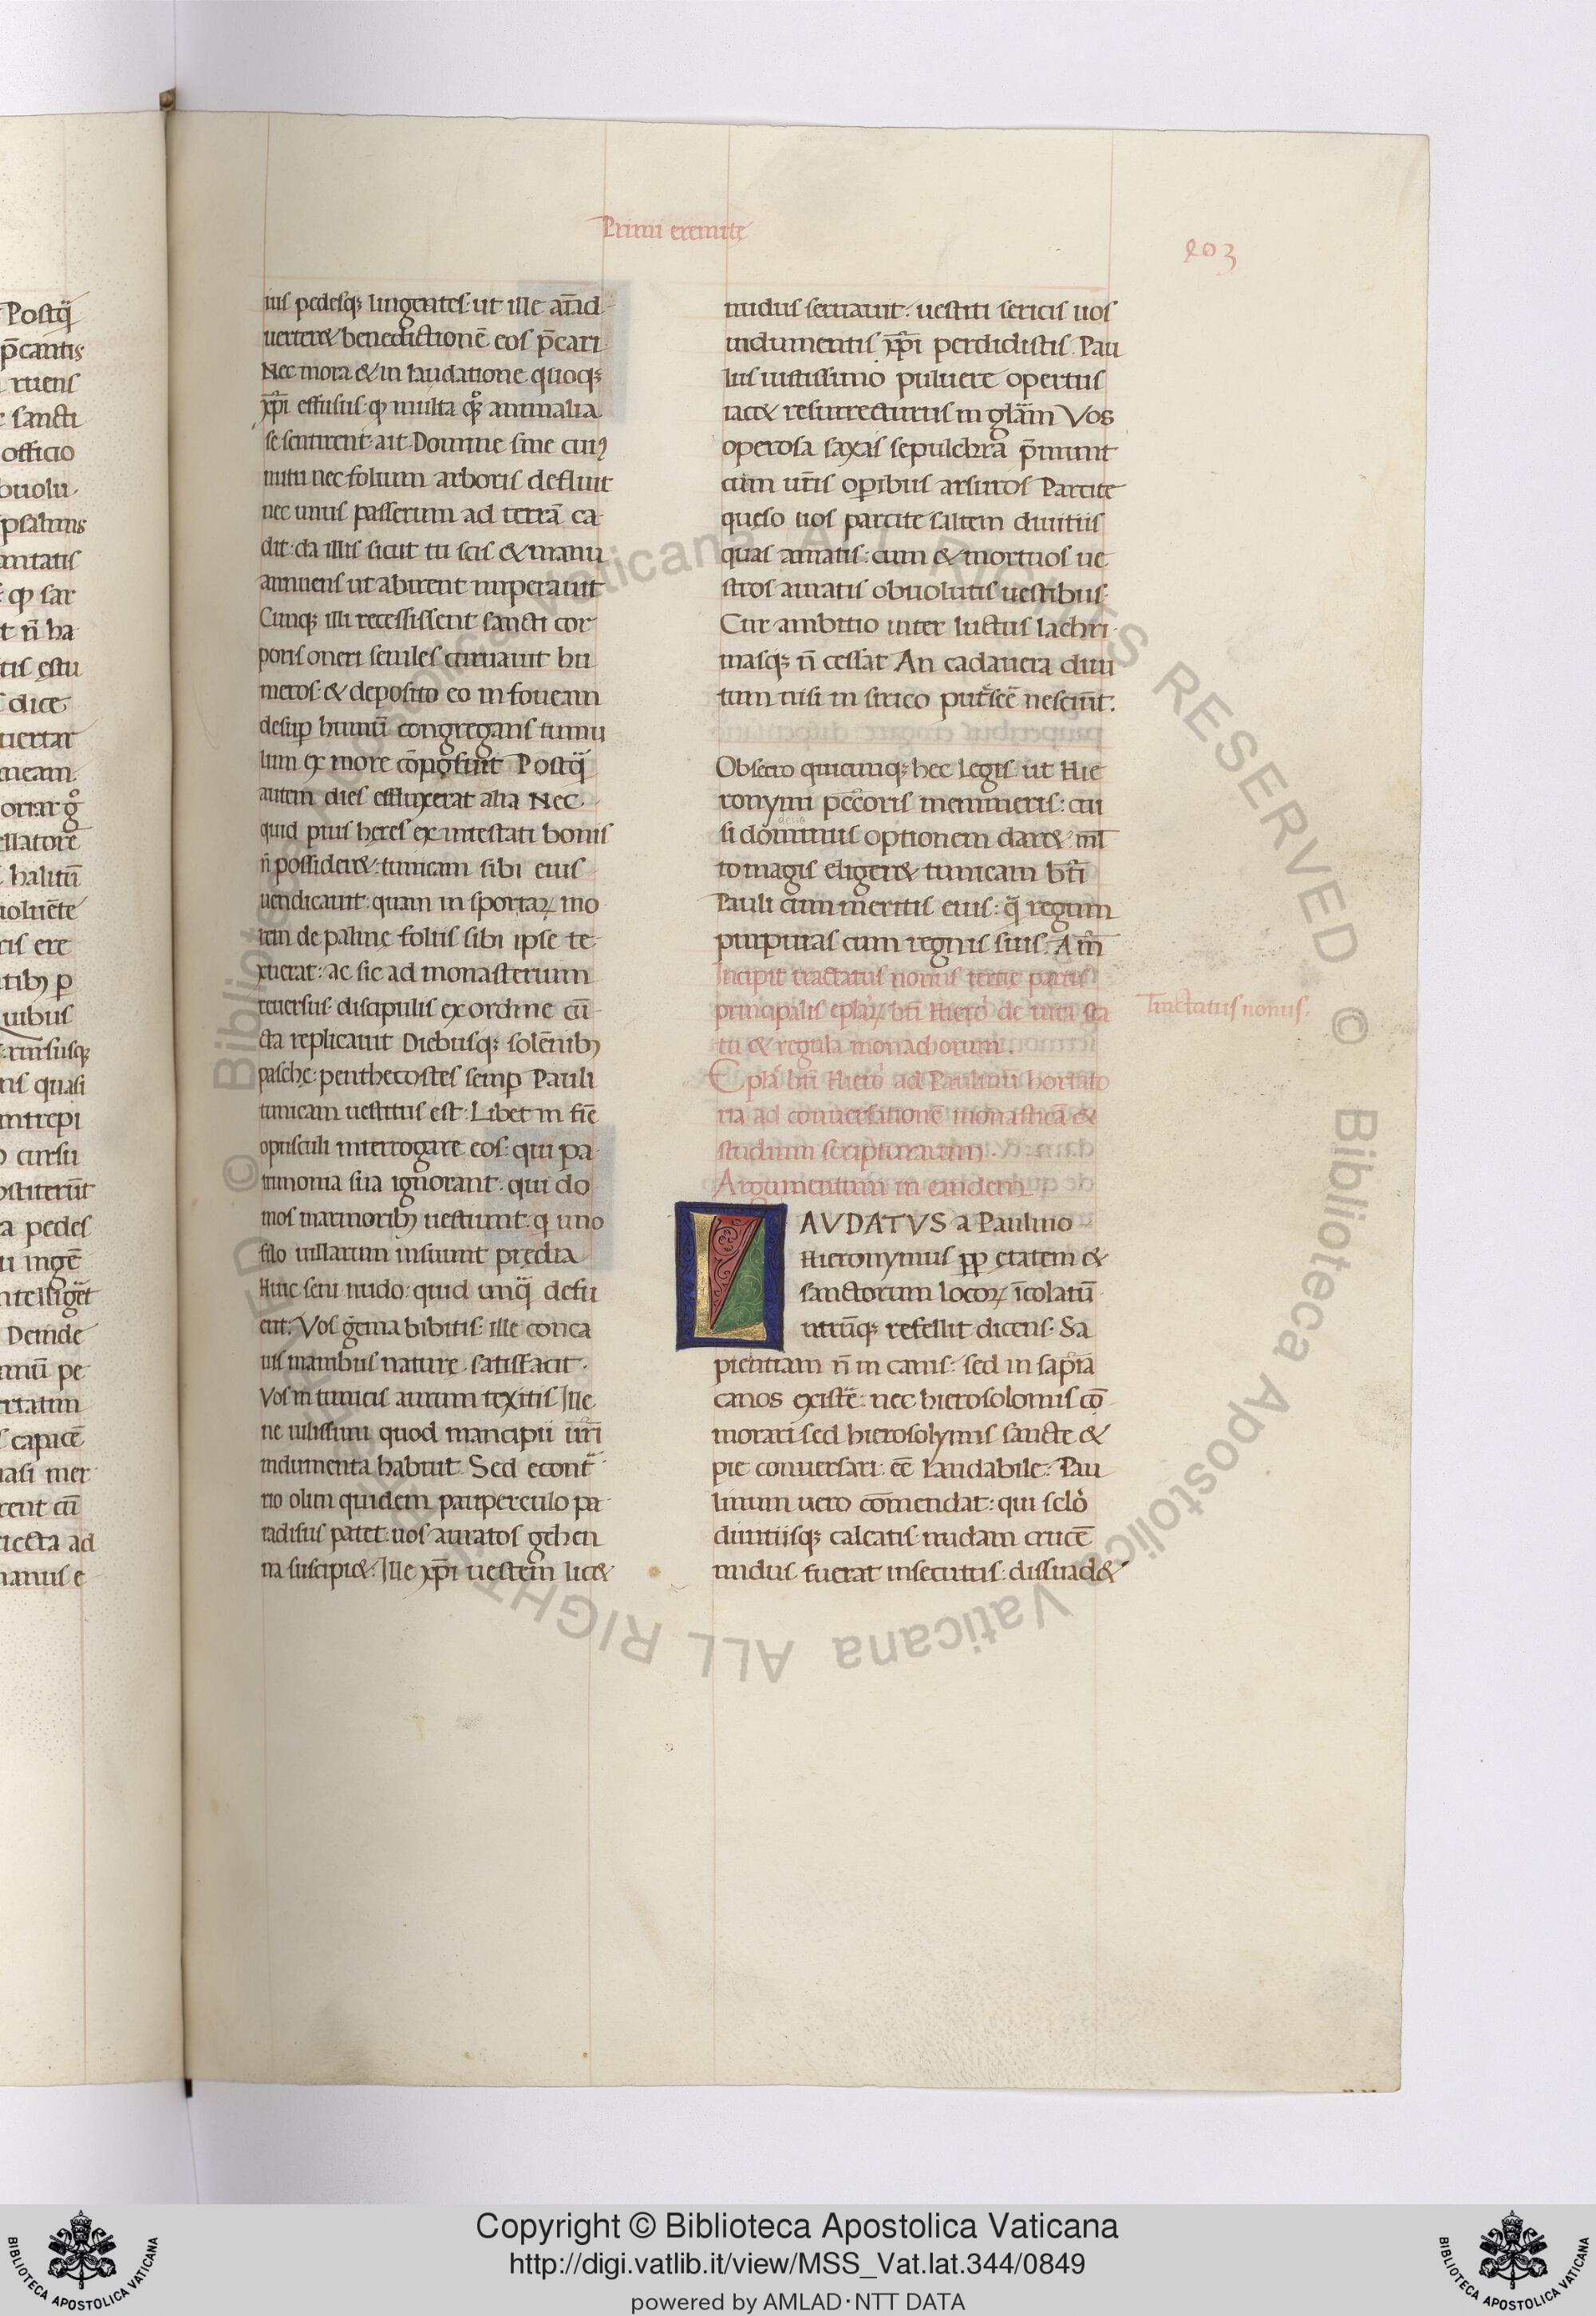 Primi eremitę
403
Postq̃
p̄cantis
rtiens
sancti
officio
buolu
psalmis
antatis
ꝙ sar
t n̄ ha
tis ęstu
dice
uertar
meam
oriar g̊
ellatore
halitū
uoluēte
ris ere
tibꝫ ꝑ
uibus
rursusqꝫ
ns quasi
intrepi
cursu
ostiterūt
a pedes
u ingē
ntelligēt
Deinde
umū pe
ertatim
capacē
uasi mer
rent cū
iecta ad
manus e
ius pedesqꝫ lingentes: ut ille aīad
uerteret benedictionē eos p̄cari
Nec mora & in laudatione quoqꝫ
xp̄i effusus: ꝙ multa qꝫ animalia
se sentirent: ait. Domine sine cuiꝰ
nutu nec folium arboris defluit
nec unus passerum ad terrā ca
dit: da illis sicut tu scis & manu
annuens ut abirent imperauit
Cunqꝫ illi recessissent sancti cor
poris oneri seniles curuauit hu
meros: & deposito eo in foueam
desuꝑ humū congregans tumu
lum ex more cōposuit Postq̃
autem dies effluxerat alia Nec
quid pius heres ex intestati bonis
n̄ possideret: tunicam sibi eius
uendicauit: quam in sportaꝝ mo
rem de palme foliis sibi ipse te
xuerat: ac sic ad monasterium
reuersus discipulis ex ordine cū
cta replicauit Diebusqꝫ solēnibꝫ
pasche: penthecostes semꝑ Pauli
tunicam uestitus est. Libet in fiē
opusculi interrogare eos: qui pa
trimonia sua ignorant: qui do
mos marmoribꝫ uestiunt: q uno
filo uillarum insuunt prędia
Huic seni nudo: quid unq̃ defu
erit: Vos gēma bibitis: ille conca
uis manibus naturę satisfacit.
Vos in tunicis aurum texitis Ille
ne uilissimi quod mancipii ur̄i
indumenta habuit. Sed econt̃
rio olim quidem pauperculo pa
radisus patet: uos auratos gehen
na suscipiet: Ille xp̄i uestem licet
nudus seruauit: uestiti sericis uos
indumentis xp̄i perdidistis. Pau
lus uilissimo puluere opertus
iacet resurrecturus in glām Vos
operosa saxis sepulchra p̄munt
cum ur̄is oꝑibus arsuros Parcite
queso uos parcite saltem diuitiis
quas amatis: cum & mortuos ue
stros auratis obuolutis uestibus:
Cur ambitio inter luctus lachri
masqꝫ n̄ cessat An cadauera diui
tum nisi in sirico put̃scē nesciūt:
Obsecro quicunqꝫ hec legis: ut Hie
ronymi pcc̄oris memineris: cui
si dominus optionem daret ml̄
to magis eligeret tunicam bt̄i
Pauli cum meritis eius: q̃ regum
purpuras cum regnis suis: Am̄
Incipit tractatus nonus tertię partis
principalis eplāꝝ bt̄i Hiero de uita sta
tu & regula monachorum.
Tractatus nonus.
Eplā bt̄i Hiero ad Paulinū hortato
ria ad conuersationē monasticā &
studium scripturarum.
Argumentum in eandem.
LAVDATVS a Paulino
Hieronymus ꝓp ętatem &
sanctorum locoꝝ īcolatū
utrūqꝫ refellit dicens. Sa
pientiam n̄ in canis: sed in sapīa
canos existē: nec hierosolomis cō
morari sed hierosolymis sancte &
pie conuersari: eē laudabile: Pau
linum uero cōmendat: qui sclo
diuitiisqꝫ calcatis nudam crucē
nudus fuerat insecutus: dissuadet
© Biblioteca Apostolica Vaticana ALL RIGHTS RESERVED
Copyright © Biblioteca Apostolica Vaticana
http://digi.vatlib.it/view/MSS_Vat.lat.344/0849
powered by AMLAD·NTT DATA
BIBLIOTECA APOSTOLICA VATICANA
BIBLIOTECA APOSTOLICA VATICANA